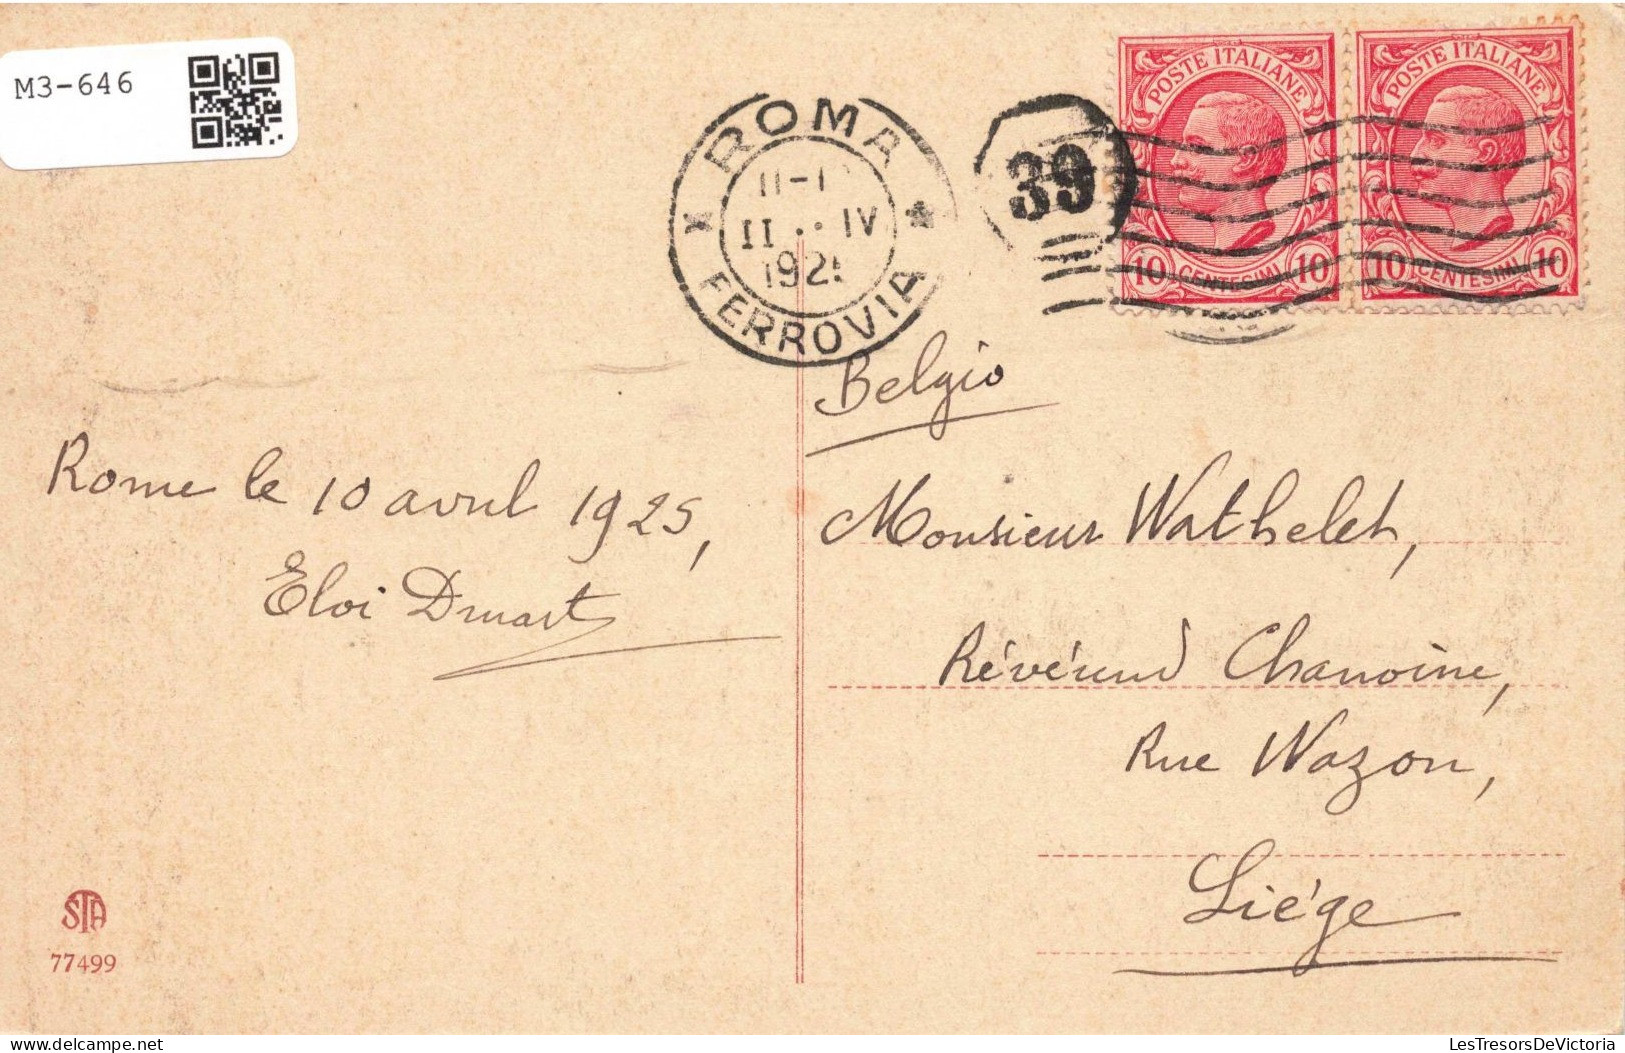 M3-646
ROMA
II-1
II · IV
1925
FERROVIA
39
POSTE ITALIANE
10 CENTESIMI 10
POSTE ITALIANE
10 CENTESIMI 10
Belgio
Rome le 10 avril 1925,
Eloi Druart
Monsieur Wathelet,
Révérend Chanoine,
Rue Wazon,
Liége
STA
77499
delcampe.net
LesTresorsDeVictoria